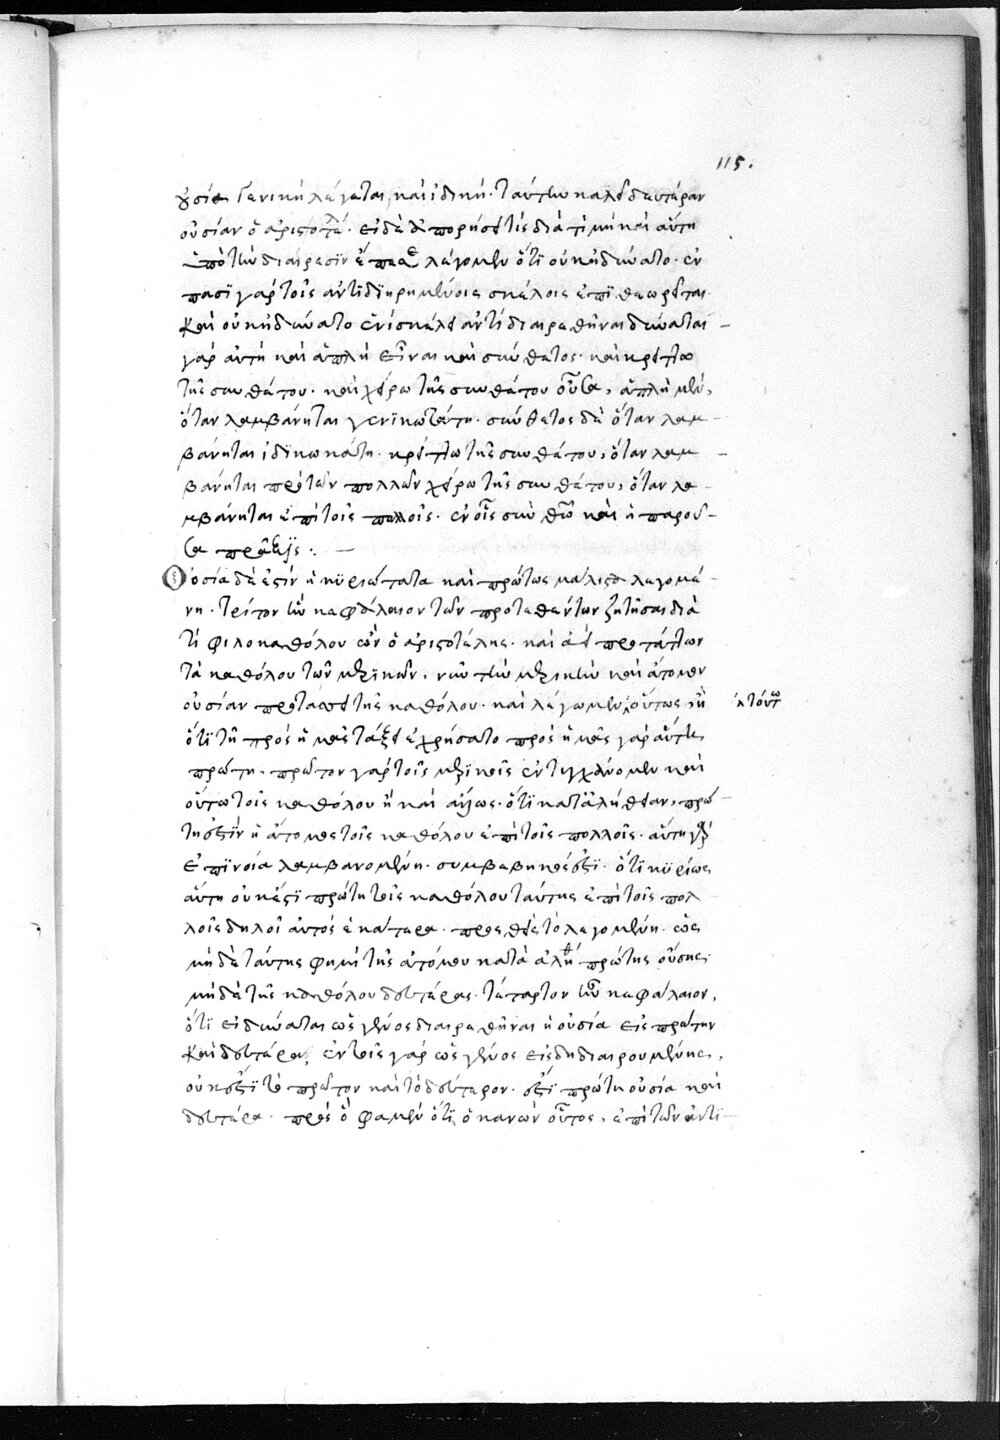 115.
οὐσία γενικὴ λέγεται, καὶ εἰδική· ταύτην καλεῖ δευτέραν
οὐσίαν ὁ ἀριστοτέ. εἰ δὲ ἀπορήσει τίς διὰ τί μὴ καὶ αὕτη
ὑπὸ τὴν διαίρεσιν ἔπεσε λέγομεν ὅτι οὐκ ἠδύνατο· ἐν
πᾶσι γὰρ τοῖς ἀντιδιῃρημένοις σκέλεσι ἐπιθεωρεῖται.
καὶ οὐκ ἠδύνατο ἑνὶ σκέλει ἀντιδιαιρεθῆναι δύναται
γὰρ αὐτὴ καὶ ἁπλῆ εἶναι καὶ σύνθετος· καὶ κρείττω
τῆς συνθέτου· καὶ χείρω τῆς συνθέτου οὖσα, ἁπλῆ μὲν,
ὅταν λαμβάνηται γενικωτάτη· σύνθετος δὲ ὅταν λαμ
βάνηται ἰδικωτάτη· κρείττω τῆς συνθέτου, ὅταν λαμ
βάνηται πρὸ τῶν πολλῶν χείρω τῆς συνθέτου, ὅταν λα
μβάνηται ἐπὶ τοῖς πολλοῖς· ἐν οἷς σὺν θεῷ καὶ ἡ παροῦ
σα πρᾶξις:. —
Οὐσία δέ ἐστιν ἡ κυριώτατα καὶ πρώτως μάλιστα λεγομέ
νη· τρίτον ἦν κεφάλαιον τῶν προτεθέντων ζητῆσαι διὰ
τί φιλοκαθόλου ὢν ὁ ἀριστοτέλης· καὶ ἀεὶ προτάττων
τὰ καθόλου τῶν μερικῶν, νῦν τὴν μερικὴν καὶ ἄτομον
οὐσίαν προτάσσει τῆς καθόλου· καὶ λέγωμεν οὕτως ἢ
ἤτ τούτ
ὅτι τῇ πρὸς ἡμᾶς τάξει ἐχρήσατο πρὸς ἡμᾶς γὰρ αὕτη
πρώτη· πρῶτον γὰρ τοῖς μερικοῖς ἐντυγχάνομεν καὶ
οὕτω τοῖς καθόλου ἢ καὶ ἄλλως· ὅτι κατ' ἀλήθειαν, πρώ
τη ἐστὶν ἡ ἄτομος τοῖς καθόλου ἐπὶ τοῖς πολλοῖς· αὕτη γὰρ
ἐπινοία λαμβανομένη· συμβεβηκός ἐστι· ὅτι κυρίως
αὕτη οὐκ ἔστι πρώτη τοῖς καθόλου ταύτης ἐπὶ τοῖς πολ
λοῖς δηλοῖ αὐτὸς ἑκάτερα· προσθεὶς τὸ λεγομένη· ὡς
μηδὲ ταύτης φημὶ τῆς ἀτόμου κατὰ ἀλήθ πρώτης οὔσης
μηδὲ τῆς καθόλου δευτέρας· τέταρτον ἦν κεφάλαιον,
ὅτι εἰ δύναται ὡς γένος διαιρεθῆναι ἡ οὐσία εἰς πρώτην
καὶ δευτέραν, ἐν τοῖς γὰρ ὡς γένος εἰς εἴδη διαιρουμένοις,
οὐκ ἔστι τὸ πρῶτον καὶ τὸ δεύτερον· ἔστι πρώτη οὐσία καὶ
δευτέρα· πρὸς ὃ φαμὲν ὅτι ὁ κανὼν οὗτος, ἐπὶ τῶν ἀντι